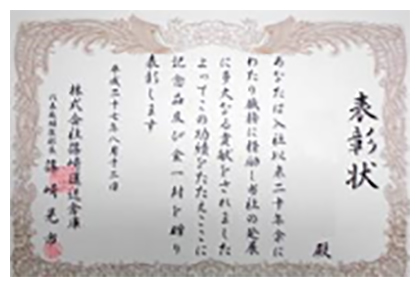 表彰状
殿
あなたは入社以来二十年余に
わたり職務に精励し当社の発展
に多大なる貢献をされました
よってこの功績をたたえここに
記念品及び金一封を贈り
表彰します
平成二十七年八月十三日
株式会社篠崎運送倉庫
代表取締役社長 篠崎